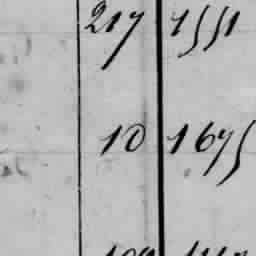 217 1551
10 1675